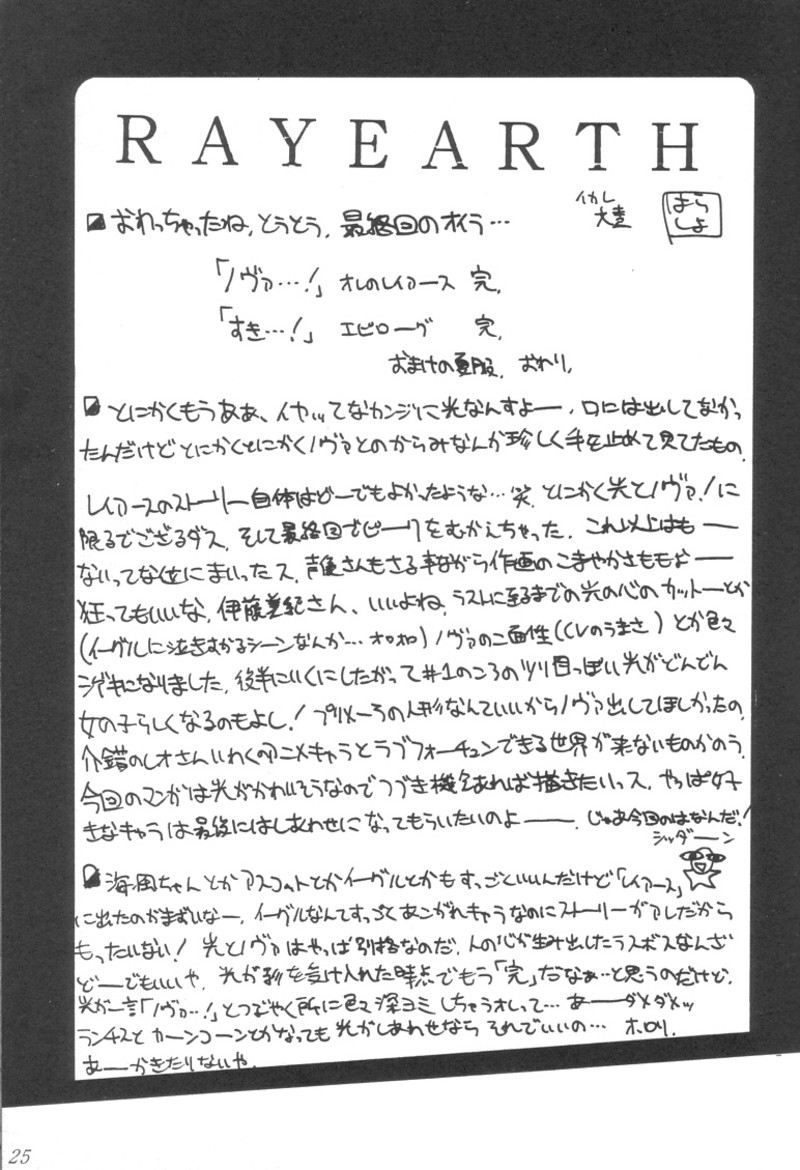 RAYEARTH
イカレ大圭
はらしょ
おわっちゃったね、とうとう、最終回のオイラ…
「ノヴァ…！」オレのレイアース 完、
「すき…！」エピローグ 完、
おまけの夏服、おわり、
とにかくもうああ、イヤッてなカンジに光なんすよー、口には出してなかっ
たんだけどとにかくとにかくノヴァとのからみなんか珍しく手を止めて見てたもの、
レイアースのストーリー自体はどーでもよかったような…笑、とにかく光とノヴァ！に
限るでござるダス、そして最終回でピークをむかえちゃった、これ以上はもー
ないってな位にまいったス、声優さんもさる事ながら作画のこまやかさももぉー
狂ってもいいな、伊藤美紀さん、いいよね、ラストに至るまでの光の心のカットーとか
(イーグルに泣きすがるシーンなんか…オロオロ)ノヴァの二面性(CVのうまさ)とか色々
シゲキになりました、後半にいくにしたがって#1のころのツリ目っぽい光がどんどん
女の子らしくなるのもよし！プリメーラの人形なんていいからノヴァ出してほしかったの、
介錯のしオさんいわくのアニメキャラとラブフォーチュンできる世界が来ないものかのう、
今回のマンガは光がかわいそうなのでつづき機会あれば描きたいっス、やっぱ好
きなキャラは最後にはしあわせになってもらいたいのよー、じゃあ今回のはなんだ！
ジッダーン
海、風ちゃんとかアスコットとかイーグルとかもすっごといいんだけど「レイアース」
に出たのがまずいなー、イーグルなんてすっごくあこがれキャラなのにストーリーがアレだから
もったいない！光とノヴァはやっぱ別格なのだ、人の心が生み出したラスボスなんざ
どーでもいいや、光が影を受け入れた時点でもう「完」だなぁ…と思うのだけど、
光が一言「ノヴァ…！」とつぶやく所に色々深ヨミしちゃうオレって…あーダメダメッ
ランティスとカーンコーンとかなっても光がしあわせならそれでいいの…ホロリ、
あーかきたりないや、
25